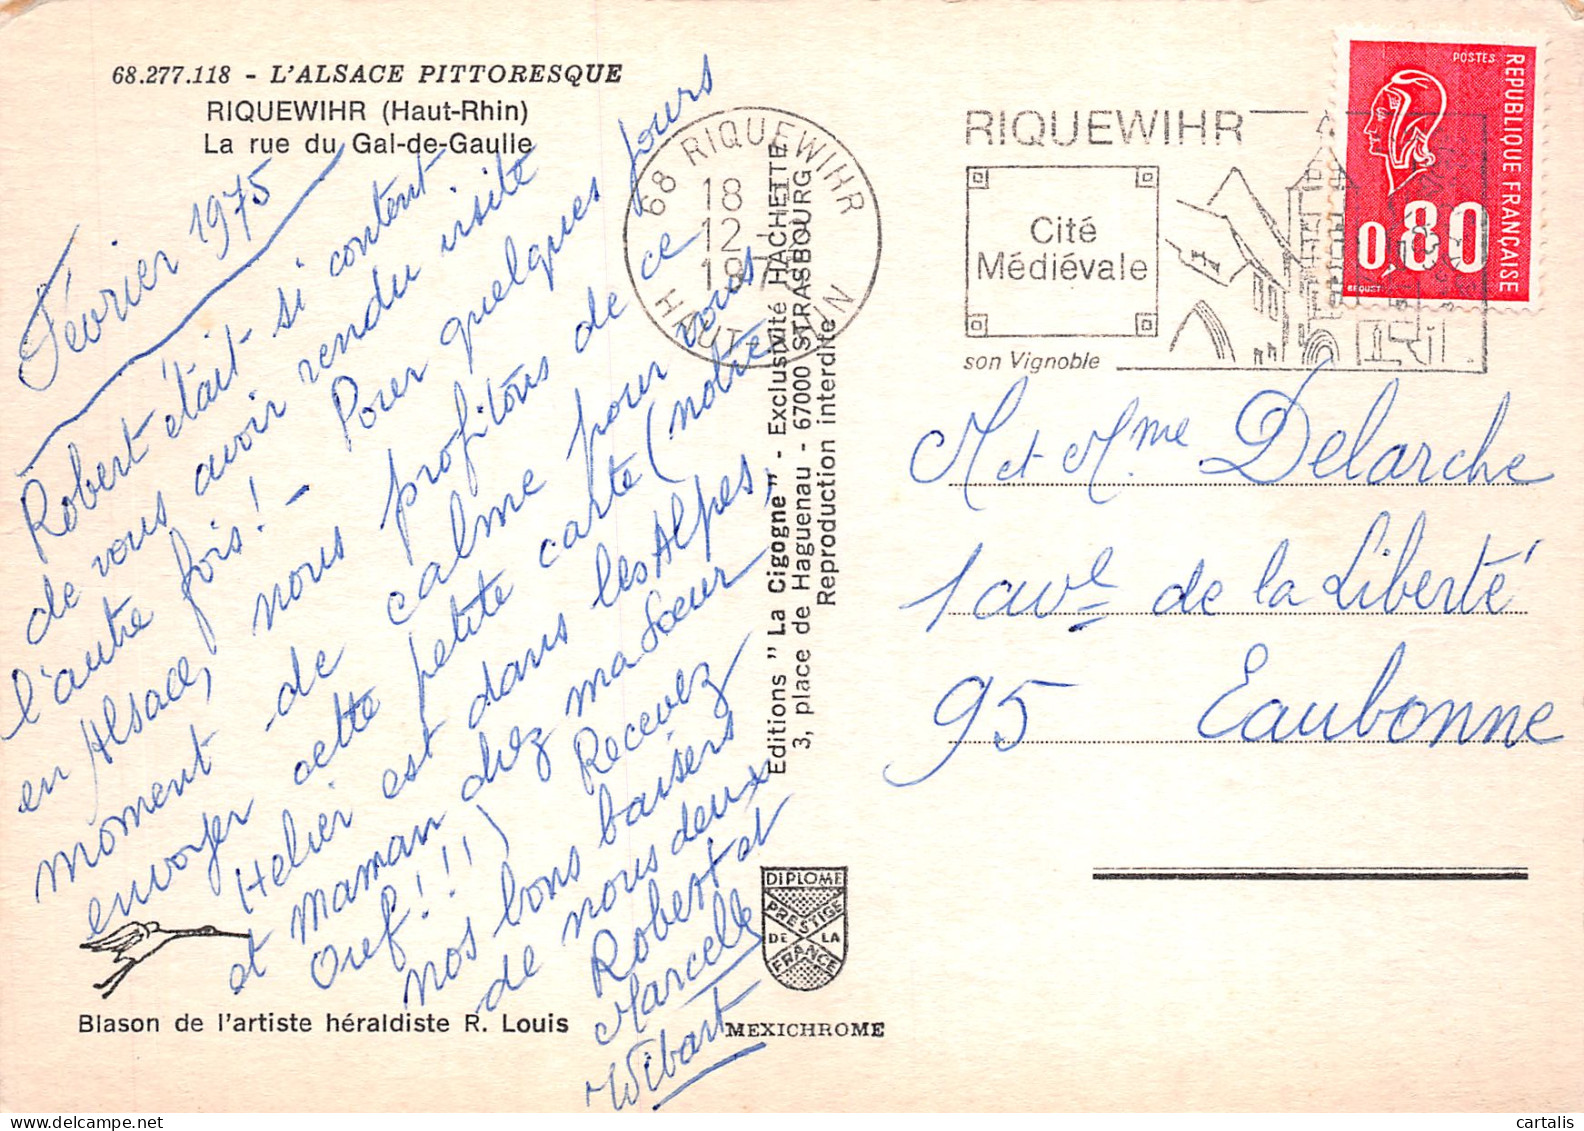 68.277.118 - L'ALSACE PITTORESQUE
RIQUEWIHR (Haut-Rhin)
La rue du Gal-de-Gaulle
Février 1975
Robert était si content
de vous avoir rendu visite
l'autre fois! - Pour quelques jours
en Alsace, nous profitons de ce
moment de calme pour vous
envoyer cette petite carte (notre
Helier est dans les Alpes,
et maman chez ma soeur
Oref!!!) Recevez
nos bons baisers
de nous deux
Robert et
Marcelle
Wibart
Blason de l'artiste héraldiste R. Louis
68 RIQUEWIHR
18 H
12 - 2
1975
HAUT-RHIN
Editions "La Cigogne" - Exclusivité HACHETTE
3, place de Haguenau - 67000 STRASBOURG
Reproduction interdite
DIPLOME
PRESTIGE
DE LA
FRANCE
MEXICHROME
RIQUEWIHR
Cité
Médiévale
son Vignoble
POSTES
REPUBLIQUE FRANÇAISE
0,80
BEQUET
M et Mme Delarche
1 ave de la Liberté
95 Eaubonne
cartalis